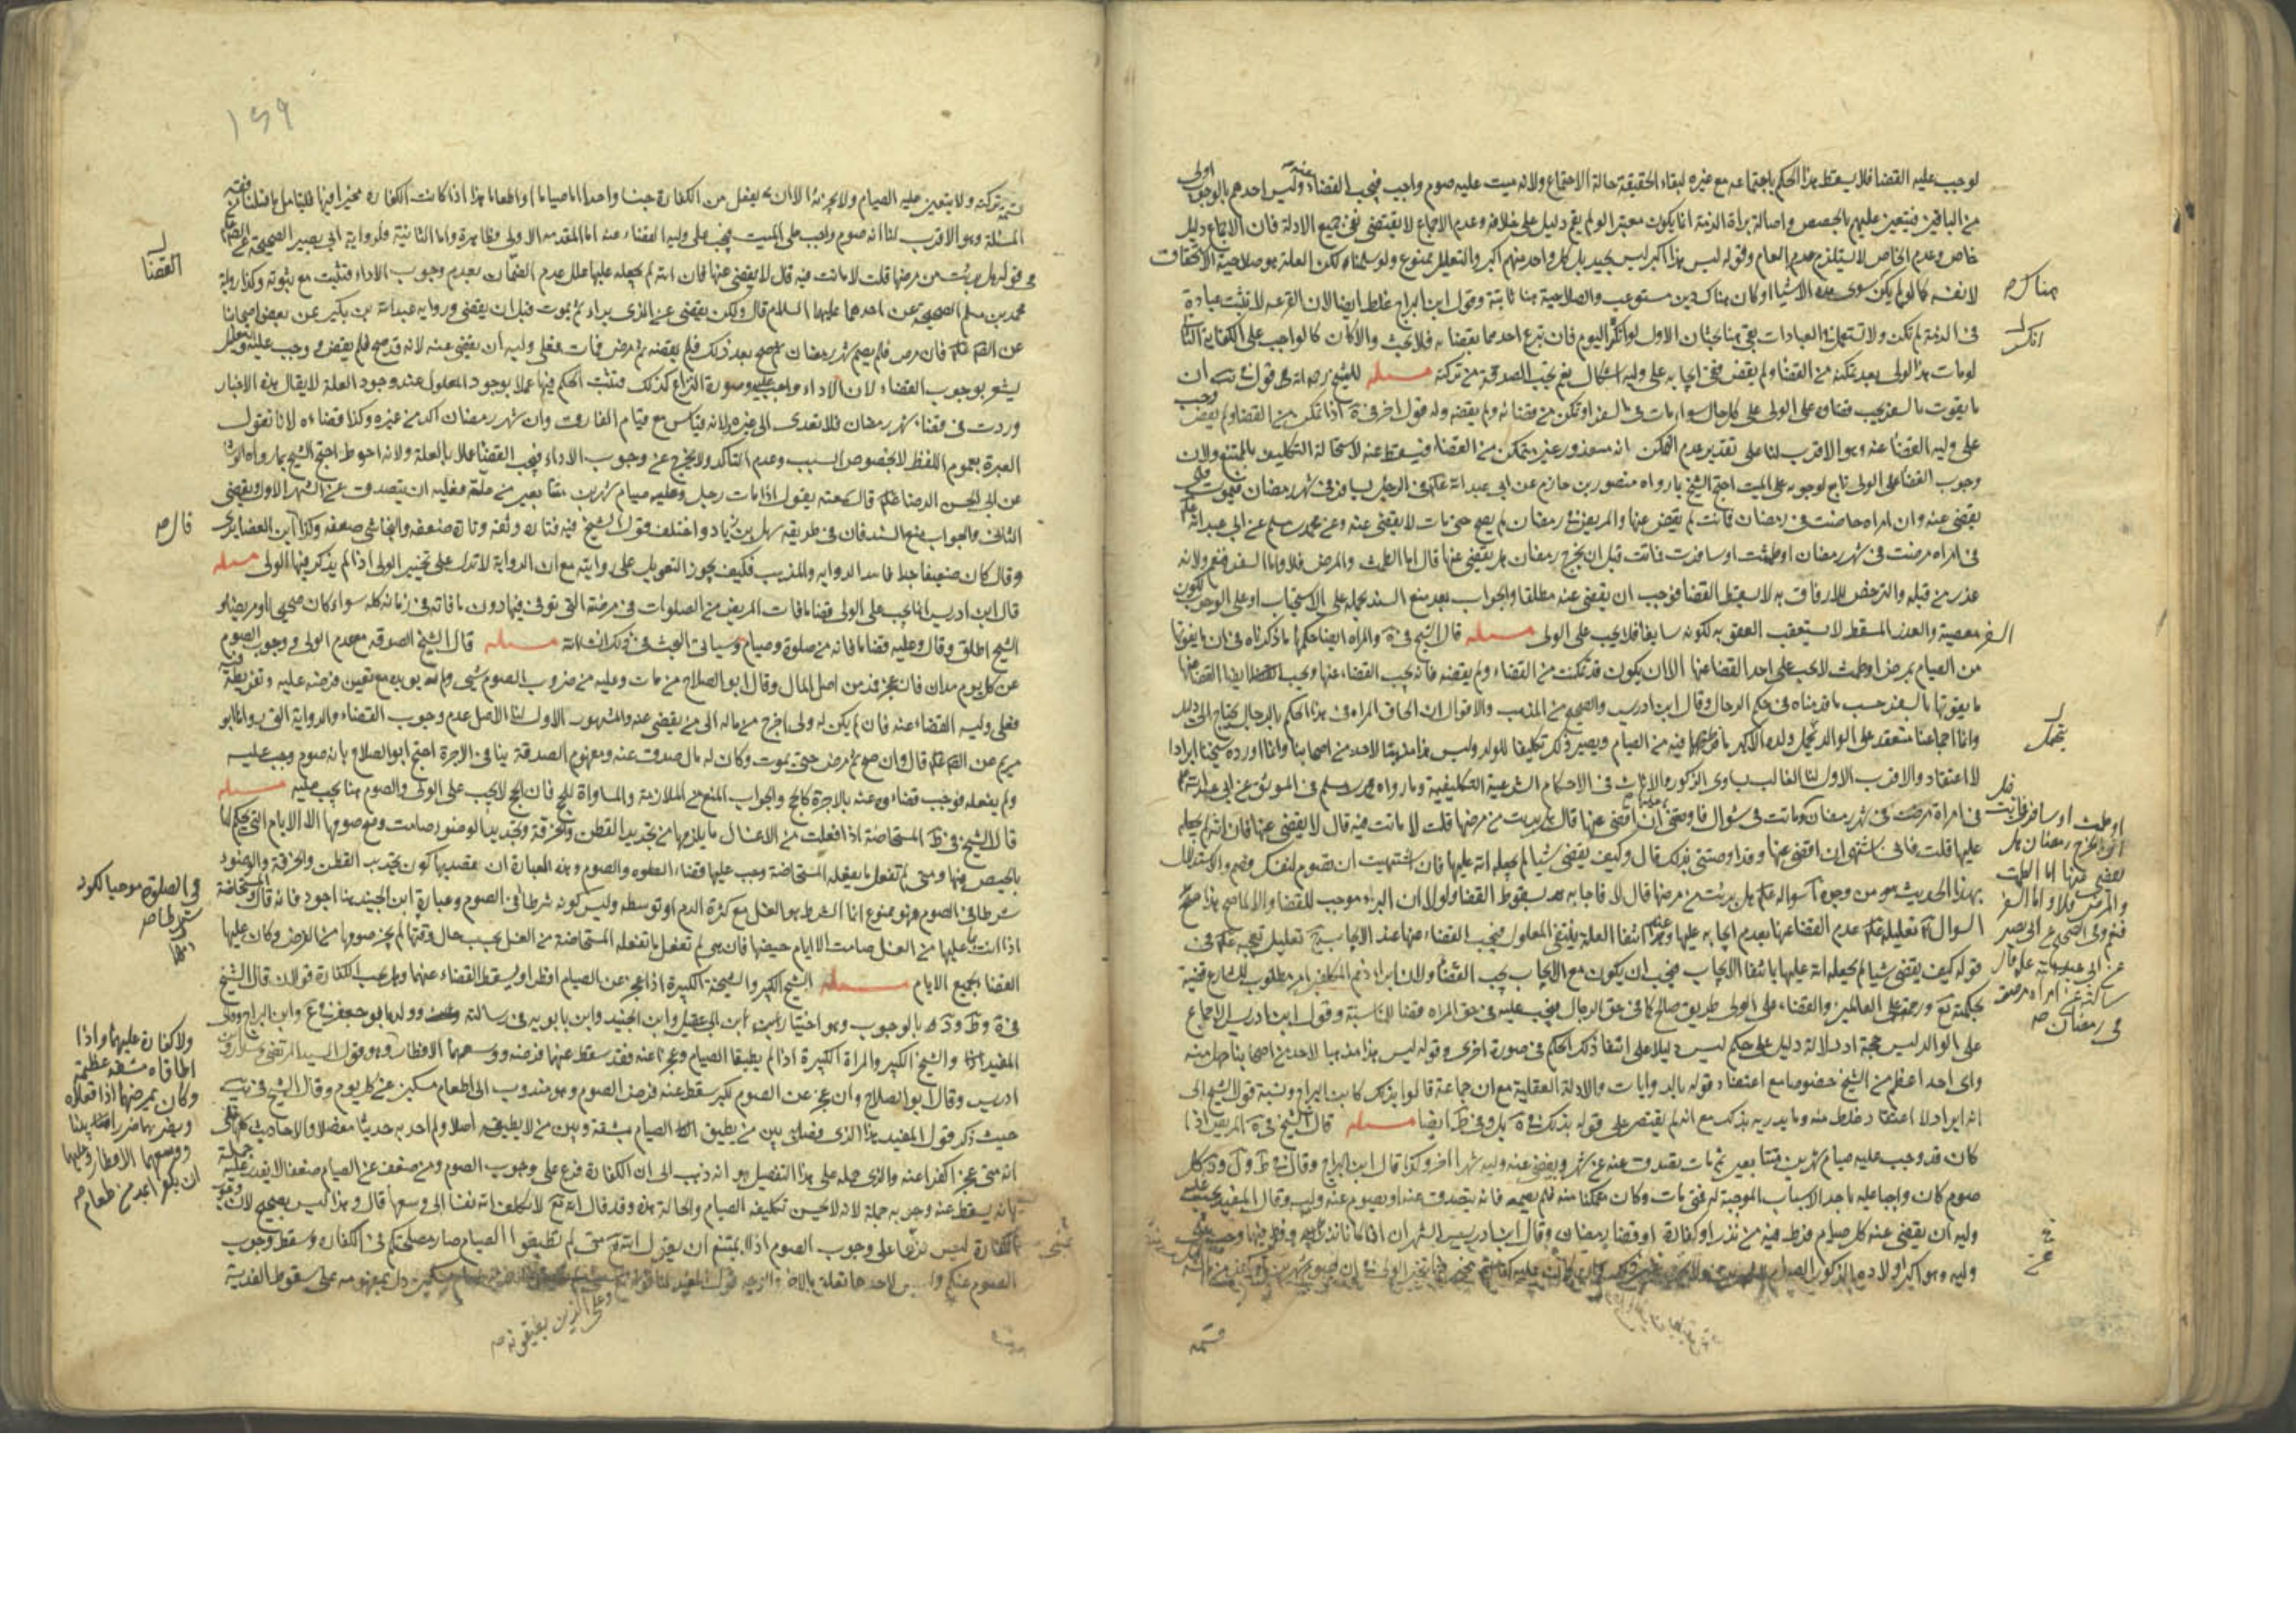 لوجب عليه القضا فلا يسقط هذا الحكم باجتماعه مع غيره لبقاء الحقيقة حالة الاجتماع ولانه ميت عليه صوم واجب فيجب القضاء عنه وليس احدهم بالوجوب اولى
من الباقين فيتعين عليهم بالحصص واصالة براة الذمة انما يكون معتبرا لو لم يقم دليل على خلافه وعدم الاجماع لا يقتضى نفى جميع الادلة فان الاجماع دليل
خاص وعدم الخاص لا يستلزم عدم العام وقوله ليس هذا اكبر ليس بجيد بل كل واحد منهم اكبر والتعليل ممنوع ولو سلمناه لكن العلة هو صلاحية الاستحقاق
لانفسه كما لو لم يكن سوى هذه الاشيا او كان هناك دين مستوعب والصلاحية هنا ثابتة وقول ابن البراج غلط ايضا لان القرعة لا تثبت عبادة
فى الذمة لم تكن ولا تستعمل فى العبادات بقى هنا بحثان الاول لو انكسر اليوم فان تبرع احدهما بقضائه فلا بحث والا كان كالواجب على الكفاية الثانى
لو مات هذا الولى بعد تمكنه من القضا ولم يقض ففى ايجابه على وليه اشكال نعم يجب الصدقة من تركته مسئله للشيخ رحمه الله قولان فى ان
ما يفوت بالسفر يجب قضاؤه على الولى على كل حال سواء مات فى السفر او تمكن من قضائه ولم يقضه وله قول اخر فى ف اذا تمكن من القضا ولم يقض وجب
على وليه القضا عنه وهو الاقرب لنا على تقدير عدم التمكن انه معذور غير متمكن من القضاء فيسقط عنه لاستحالة التكليف بالممتنع ولان
وجوب القضا على الولى تابع لوجوبه على الميت احتج الشيخ بما رواه منصور بن حازم عن ابى عبد الله عليه السلام فى الرجل يسافر فى شهر رمضان فيموت قال
يقضى عنه وان امراه حاضت فى رمضان فماتت لم يقض عنها والمريض فى رمضان لم يصح حتى مات لا يقضى عنه وعن محمد بن مسلم عن ابى عبد الله
فى امراه مرضت فى شهر رمضان او طمثت او سافرت فماتت قبل ان يخرج رمضان هل يقضى عنها قال اما الطمث والمرض فلا واما السفر فنعم ولانه
عذر من قبله والترخص للارفاق به لا يسقط القضا فوجب ان يقضى عنه مطلقا والجواب بعد منع السند بحمله على الاستحباب او على الوجوب لكون
السفر معصية والعذر المسقط لا يستعقب العفو به لكونه سايغا فلا يجب على الولى مسئله قال الشيخ فى ف والمراه ايضا حكمها ما ذكرناه فى ان ما يفوتها
من الصيام بمرض او طمث لا يجب على احد القضا عنها الا ان يكون قد تمكنت من القضاء ولم يقضه فانه يجب القضاء عنها ويجب ايضا القضا عنها
ما يفوتها بالسفر حسب ما قدمناه فى حكم الرجال وقال ابن ادريس والصحيح من المذهب والاقوال ان الحاق المراه فى هذا الحكم بالرجال يحتاج الى دليل
وانما اجماعنا منعقد على الوالد يتحمل ولده الاكبر ما فرط فيه من الصيام ويصير ذلك تكليفا للولد وليس هذا مذهبا لاحد من اصحابنا وانما اورده شيخنا ايرادا
لا اعتقاد والاقرب الاول لنا الغالب تساوى الذكور والاناث فى الاحكام الشرعية التكليفية وما رواه محمد بن مسلم فى الموثق عن ابى عبد الله
فى امراة مرضت فى شهر رمضان وماتت فى شوال فاوصتنى ان اقضى عنها قال هل بريت من مرضها قلت لا ماتت فيه قال لا يقضى عنها فان الله لم يجعله
عليها قلت فانى اشتهى ان اقضى عنها وقد اوصتنى بذلك قال وكيف يقضى شيا لم يجعله الله عليها فان اشتهيت ان تصوم لنفسك فصم والاستدلال
بهذا الحديث من وجوه آ سواله عليه السلام هل برئت من مرضها قال لا فاجابه بسقوط القضا ولولا ان البراء موجب للقضا والا لما صح هذا
السوال ب تعليله عليه السلام عدم القضا عنها بعدم ايجابه عليها وعند انتفا العلة ينتفى المعلول فيجب القضاء عنها عند الايجاب ج تعليل تعجبه عليه السلام فى
قوله كيف يقضى شيا لم يجعله الله عليها بانتفا الايجاب فيجب ان يكون مع الايجاب يجب القضاء ولان ابراء ذمم المكلفين امر مطلوب للشارع قضية
لحكمته تع ورحمته على العالمين والقضاء على الولى طريق صالح كما فى حق الرجال فيجب عليه فى حق المراه قضا للمناسبة وقول ابن ادريس الاجماع
على الوالد ليس حجة اذ دلالة دليل على حكم ليس دليلا على انتفا ذلك الحكم فى صورة اخرى وقوله ليس هذا مذهبا لاحد من اصحابنا جهل منه
واى احد اعظم من الشيخ خصوصا مع اعتضاد قوله بالروايات والادلة العقلية مع ان جماعة قالوا بذلك كابن البراج ونسبة قول الشيخ الى
انه ايراد لا اعتقاد غلط منه وما يدريه بذلك مع انه لم يقتصر على قوله بذلك فى يه بل وفى ط ايضا مسئله قال الشيخ فى يه المريض اذا
كان قد وجب عليه صيام شهرين متتابعين ثم مات تصدق عنه عن شهر ويقضى عنه وليه شهرا اخر وكذا قال ابن البراج وقال فى ط وكل
صوم كان واجبا عليه باحد الاسباب الموجبة له فمتى مات وكان متمكنا منه فلم يصمه فانه يتصدق عنه او يصوم عنه وليه وقال المفيد يجب على
وليه ان يقضى عنه كل صيام فرط فيه من نذر او كفارة او قضا رمضان وقال ابن ادريس الشهران اذا كانا نذرا وفرط فيهما وجب على
وليه وهو اكبر اولاده الذكور الصيام
هناك صح
انكسر
يتحمل
او طمثت او سافرت فماتت قبل
ان يخرج رمضان هل
يقضى عنها اما الطمث
والمرض فلا واما السفر
فنعم وفى الصحيح عن ابى بصير
عن ابى عبد الله عليه السلام قال
سالته عن امراه مرضت
فى رمضان صح
قسمه
١٤٩
قسمة تركته ولا يتعين عليه الصيام ولا يجزئه الا ان يفعل من الكفارة جنسا واحدا اما صياما او اطعاما هذا اذا كانت الكفارة مخيرا فيها فليتامل ما قلناه فى
المسئلة وهو الاقرب لنا انه صوم واجب على الميت فيجب على وليه القضاء عنه اما المقدمة الاولى فظاهرة واما الثانية فلرواية ابى بصير الصحيحة عن الصادق
فى قوله هل برئت من مرضها قلت لا ماتت فيه قال لا يقضى عنها فان الله لم يجعله عليها علل عدم القضاء بعدم وجوب الاداء فتثبت مع ثبوته وكذا رواية
محمد بن مسلم الصحيحة عن احدهما عليهما السلام قال ولكن يقضى عن الذى يبراء ثم يموت قبل ان يقضى ورواية عبد الله بن بكير عن بعض اصحابنا
عن الصم فان مرض فلم يصم شهر رمضان ثم صح بعد ذلك فلم يقضه ثم مرض فمات فعلى وليه ان يقضى عنه لانه قد صح فلم يقض ووجب عليه
يشعر بوجوب القضاء لان الاداء واجب عليه وصورة النزاع كذلك فتثبت الحكم فيها عملا بوجود المعلول عند وجود العلة لا يقال هذه الاخبار
وردت فى قضاء شهر رمضان فلا تتعدى الى غيره لانه قياس مع قيام الفارق وان شهر رمضان اكد من غيره وكذا قضاءه لانا نقول
العبرة بعموم اللفظ لا بخصوص السبب وعدم التاكد لا يخرج عن وجوب الاداء فيجب القضا عملا بالعلة ولانه احوط احتج الشيخ بما رواه الوشا
عن ابى الحسن الرضا عليه السلام قال سمعته يقول اذا مات رجل وعليه صيام شهرين متتابعين من علة فعليه ان يتصدق عن الشهر الاول ويقضى
الثانى والجواب بمنع السند فان فى طريقه سهل بن زياد واختلف قول الشيخ فيه فتارة وثقه وتارة ضعفه والنجاشى ضعفه وكذا ابن الغضايرى
وقال كان ضعيفا جدا فاسد الرواية والمذهب فكيف يجوز التعويل على روايته مع ان الرواية لا تدل على تخيير الولى اذا لم يذكر فيها الولى مسئله
قال ابن ادريس انما يجب على الولى قضا ما فات المريض من الصلوات فى مرضته التى توفى فيها دون ما فاته فى زمانه كله سواء كان صحيحا او مريضا و
الشيخ اطلق وقال وعليه قضا ما فاته من صلوة وصيام وسياتى البحث فى ذلك انشاالله مسئله قال الشيخ الصدقة مع عدم الولى ووجوب الصوم
عن كل يوم مدان فان عجز فمد من اصل المال وقال ابو الصلاح من مات وعليه من ضروب الصوم شى ولم يوده مع تعين فرضه عليه وتفريطه فيه
فعلى وليه القضاء عنه فان لم يكن له ولى اخرج من ماله الى من يقضى عنه والمشهور الاول لنا الاصل عدم وجوب القضاء والرواية التى رواها ابو
مريم عن الصم قال وان صح ثم مرض حتى يموت وكان له مال صدق عنه ومفهوم الصدقة ينافى الاجرة احتج ابو الصلاح بانه صوم وجب عليه
ولم يفعله فوجب قضاؤه عنه بالاجرة كالحج والجواب المنع من الملازمة والمساواة للحج فان الحج لا يجب على الولى والصوم هنا يجب عليه مسئله
قال الشيخ فى ط المستحاضة اذا فعلت من الاغسال ما يلزمها من تجديد القطن والخرقة وتجديد الوضو صامت وصح صومها الا الايام التى يحكم لها
بالحيض فيها ومتى لم تفعل ما يفعله المستحاضة وجب عليها قضاء الصلوه والصوم وهذه العبارة ان قصد بها كون تجديد القطن والخرقة والوضوء
شرطا فى الصوم فهو ممنوع انما الشرط هو الغسل مع كثرة الدم او توسطه وليس كونه شرطا فى الصوم وعبارة ابن الجنيد هنا اجود فانه قال والمستحاضة
اذا اتت بما عليها من الغسل صامت الا ايام حيضها فان هى لم تفعل ما تفعله المستحاضة من الغسل بحسب حال وقتها لم يجز صومها من الفرض وكان عليها
القضا لجميع الايام مسئله الشيخ الكبير والشيخة الكبيرة اذا عجز عن الصيام افطرا ويسقط القضاء عنهما وهل يجب الكفارة قولان قال الشيخ
بالوجوب وهو اختيار ابن ابى عقيل وابن الجنيد وابن بابويه فى رسالته وولده ابو جعفر فى مقنع وابن البراج وقال
المفيد اذا والشيخ الكبير والمراة الكبيرة اذا لم يطيقا الصيام وعجزا عنه فقد سقط عنهما فرضه ووسعهما الافطار وهو قول السيد المرتضى وسلار وابن
ادريس وقال ابو الصلاح وان عجز عن الصوم لكبر سقط عنه فرض الصوم وهو مندوب الى اطعام مسكين عن كل يوم وقال الشيخ فى يب
حيث ذكر قول المفيد هذا الذى فصل به بين من يطيق الصيام بمشقة وبين من لا يطيقه اصلا ولم اجد به حديثا مفصلا والاحاديث كلها على
انه متى عجز اكفرا عنه والذى حمله على هذا التفصيل هو انه ذهب الى ان الكفارة فرع على وجوب الصوم ومن ضعف عن الصيام ضعفا لا يقدر عليه
فانه يسقط عنه وجوبه جملة لانه لا يحسن تكليفه الصيام والحالة هذه وقد قال الله تع لا يكلف الله نفسا الا وسعها قال وهذا ليس بصحيح لان وجوب
الكفارة ليس فرعا على وجوب الصوم اذ لا يمتنع ان يقول الله تع متى لم تطيقوا الصيام صار مصلحتكم فى الكفارة وسقط وجوب
الصوم عنكم وليس لاحدهما تعلق بالاخر والوجه قول المفيد لنا قوله تع دل بمفهومه على سقوط الفدية
القضا
قال صح
فى الصلوة موجبا لكونه
شرطا صح
ولا كفارة عليهما واذا
اطاقاه مشقه عظيمة
وكان يمرضهما اذا فعلاه
ويضر بهما ضررا بينا
ووسعهما الافطار وعليهما
ان يكفرا بمد من طعام صح
وعلى الذين يطيقونه صح